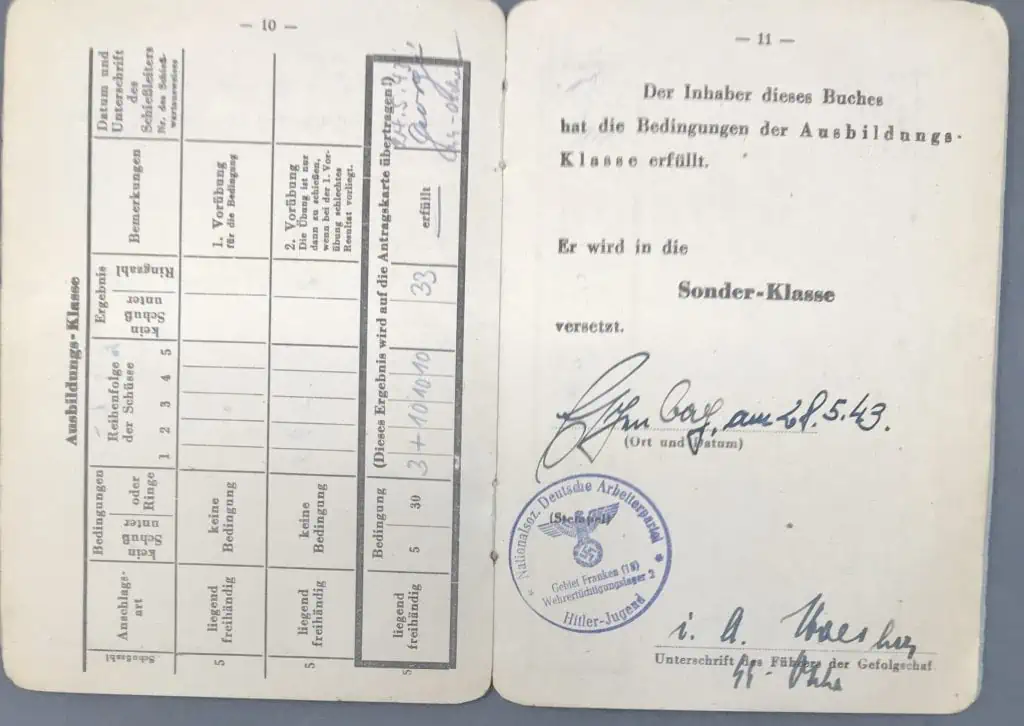 — 10 —
Ausbildungs-Klasse
Schußzahl
Anschlags-
art
Bedingungen
kein
Schuß
unter
oder
Ringe
Reihenfolge
der Schüsse
1 2 3 4 5
Ergebnis
kein
Schuß
unter
Ringzahl
Bemerkungen
Datum und
Unterschrift
des
Schießleiters
Nr. des Schieß-
wartausweises
5
liegend
freihändig
keine
Bedingung
1. Vorübung
für die Bedingung
5
liegend
freihändig
keine
Bedingung
2. Vorübung
Die Übung ist nur
dann zu schießen,
wenn bei der 1. Vor-
übung schlechtes
Resultat vorliegt.
Bedingung (Dieses Ergebnis wird auf die Antragskarte übertragen!)
5
liegend
freihändig
5 30
3 + 10 10 10
33
erfüllt
— 11 —
Der Inhaber dieses Buches
hat die Bedingungen der Ausbildungs-
Klasse erfüllt.
Er wird in die
Sonder-Klasse
versetzt.
am 28.5.43.
(Ort und Datum)
Nationalsoz. Deutsche Arbeiterpartei
(Stempel)
Gebiet Franken (18)
Wehrertüchtigungslager 2
Hitler-Jugend
i. A.
Unterschrift des Führers der Gefolgschaf